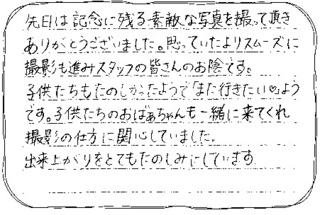 先日は記念に残る素敵な写真を撮って頂き
ありがとうございました。思っていたよりスムーズに
撮影も進みスタッフの皆さんのお陰です。
子供たちもたのしかったようで「また行きたい」のよう
です。子供たちのおばあちゃんも一緒に来てくれ
撮影の仕方に関心していました。
出来上がりをとてもたのしみにしています